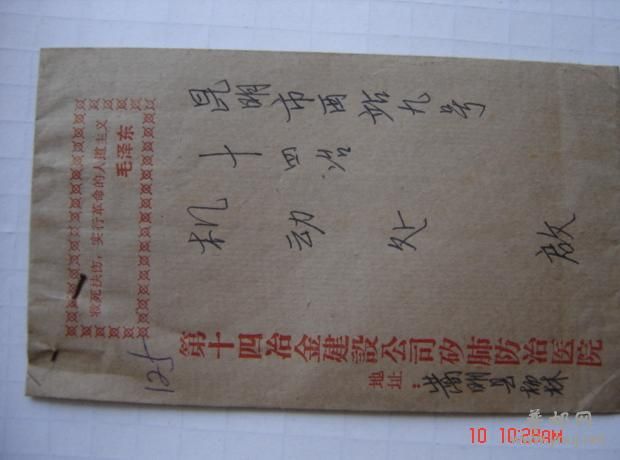 救死扶伤，实行革命的人道主义
毛泽东
昆明市西站九号
十四冶
机动处 启
125
第十四冶金建設公司矽肺防治医院
地址：嵩明县杨林
10 10:28AM